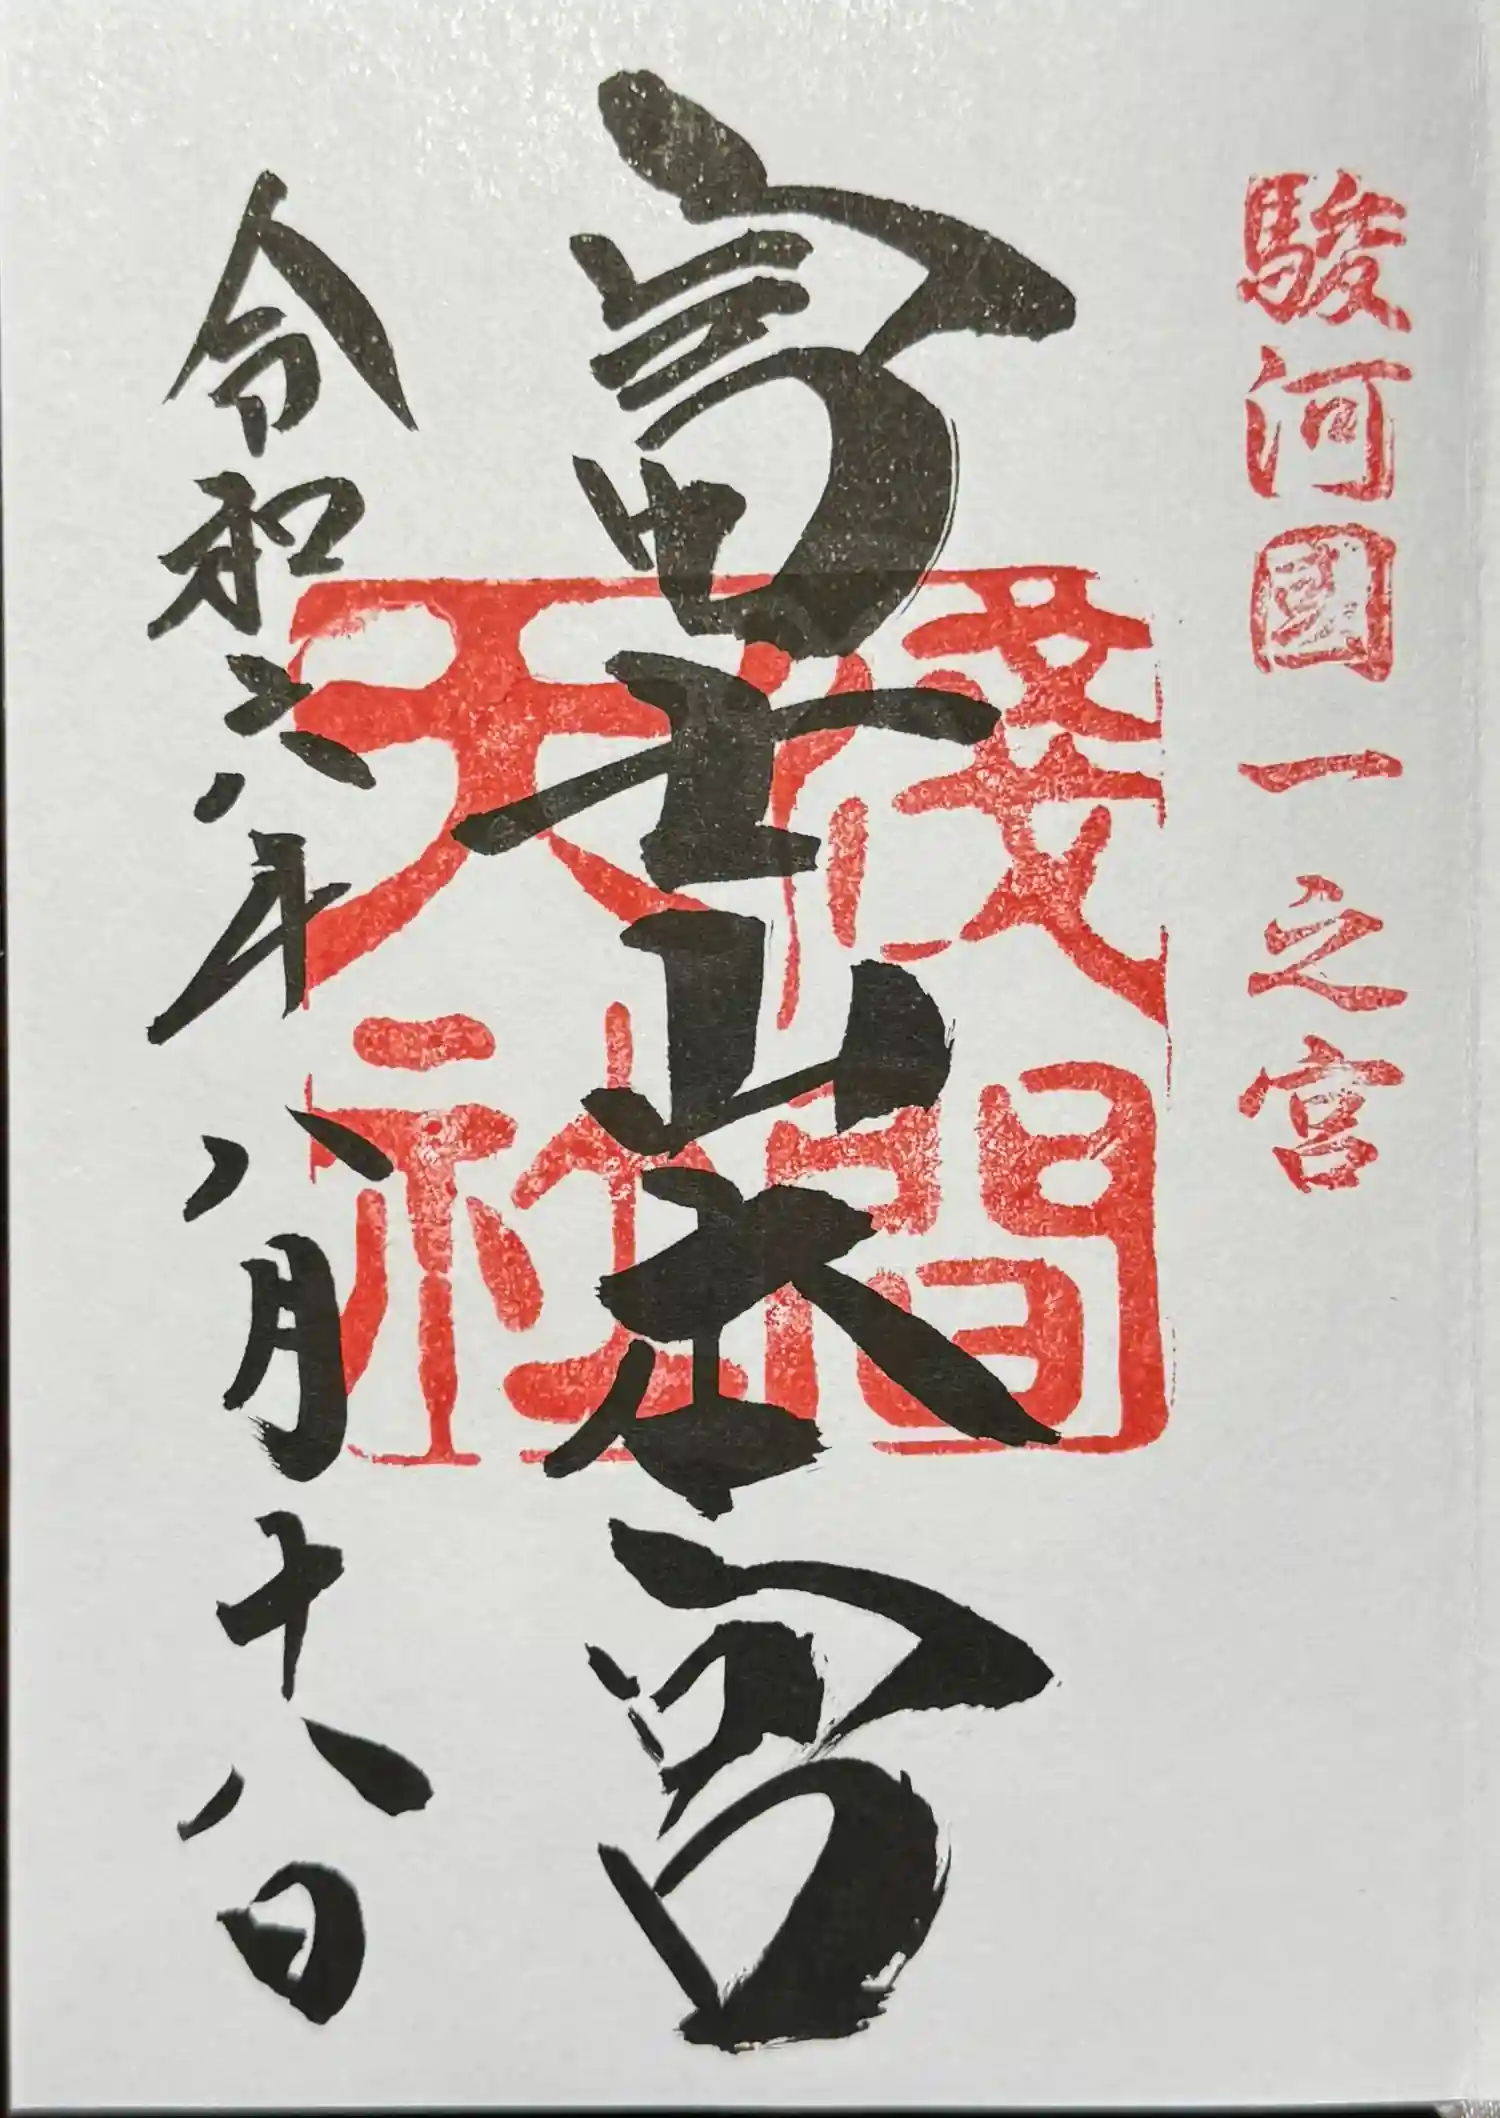 駿河國一之宮
富士山本宮
淺間大社
令和六年八月十八日